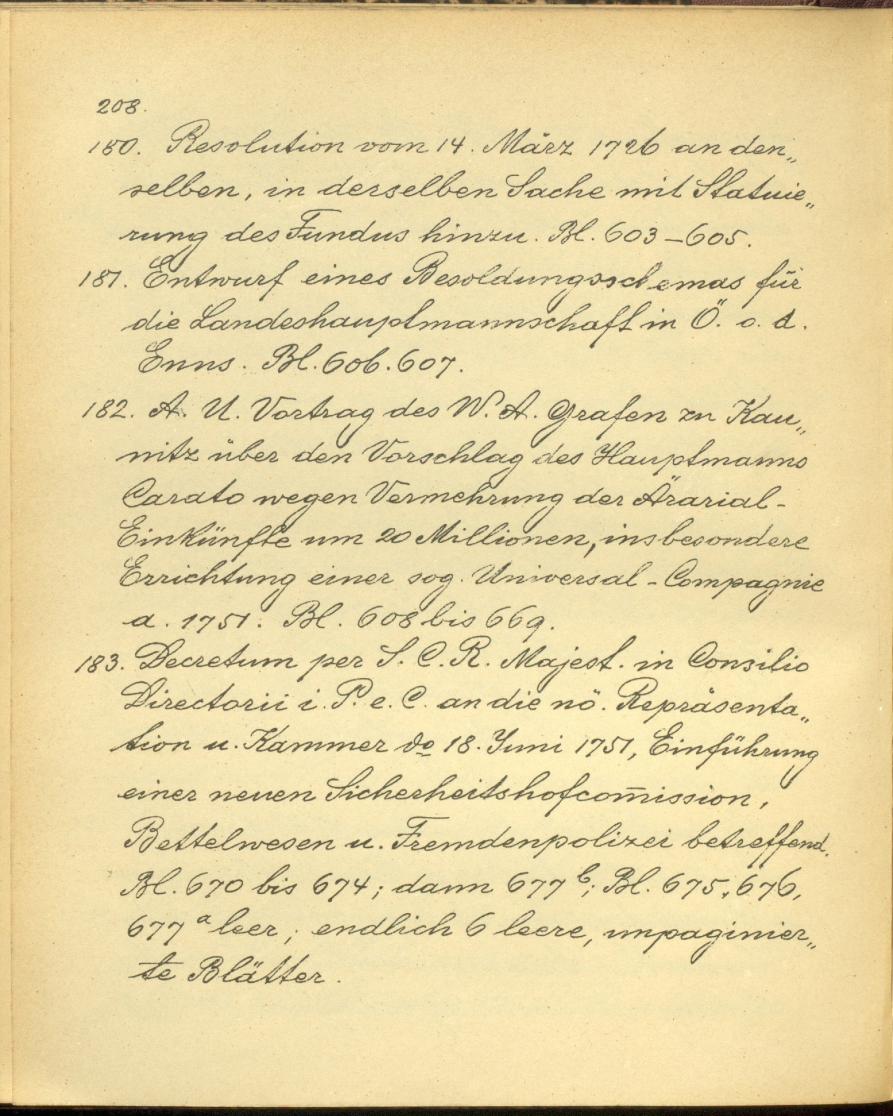 208.
180. Resolution vom 14. März 1726 an den„
selben, in derselben Sache mit Statuie„
rung des Fundus hinzu. Bl. 603–605.
181. Entwurf eines Besoldungsschemas für
die Landeshauptmannschaft in Ö. o. d.
Enns. Bl. 606. 607.
182. A. U. Vortrag des W. A. Grafen zu Kau„
nitz über den Vorschlag des Hauptmanns
Carato wegen Vermehrung der Ärarial-
Einkünfte um 20 Millionen, insbesondere
Errichtung einer sog. Universal-Compagnie
a. 1751. Bl. 608 bis 669.
183. Decretum per S. C. R. Majest. in Consilio
Directorii i. P. e. C. an die nö. Repräsenta„
tion u. Kammer do 18. Juni 1751, Einführung
einer neuen Sicherheitshofcom̄ission,
Bettelwesen u. Fremdenpolizei betreffend.
Bl. 670 bis 674; dann 677 b; Bl. 675, 676,
677 a leer; endlich 6 leere, unpaginier„
te Blätter.